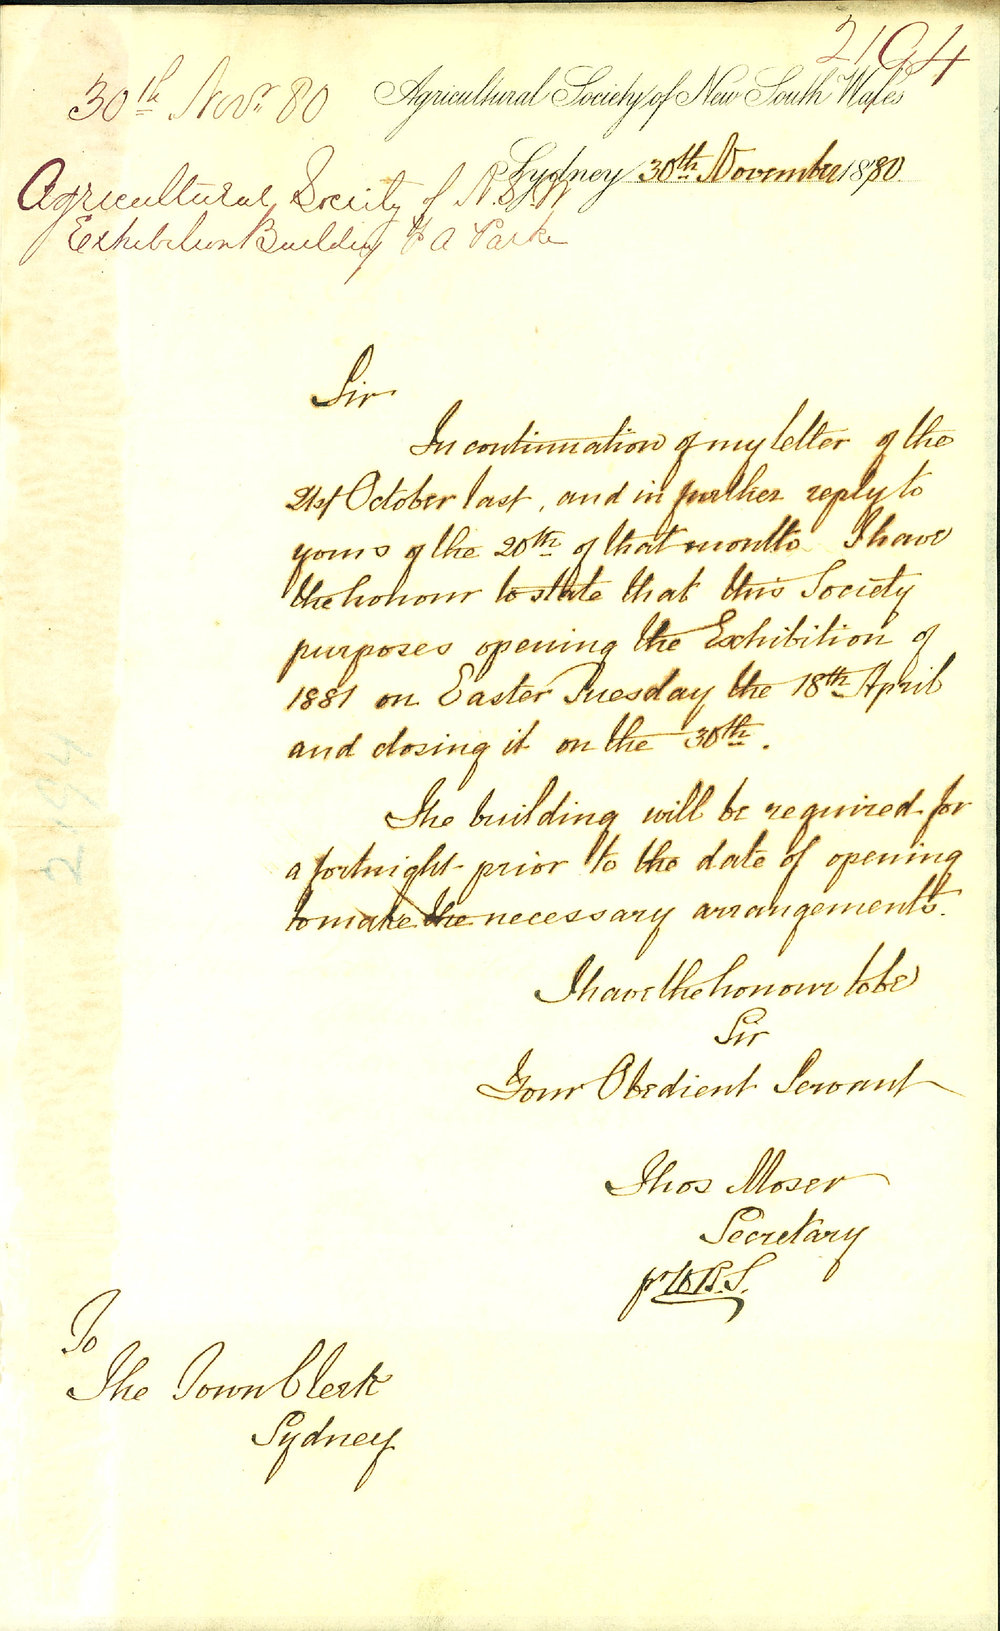 2194
30th Novr 80
Agricultural Society of New South Wales
Sydney 30th November 1880.
Agricultural Society of N.S.W
Exhibition Building P A Park
Sir
In continuation of my letter of the
21st October last, and in further reply to
yours of the 20th of that month I have
the honour to state that this Society
purposes opening the Exhibition of
1881 on Easter Tuesday the 18th April
and closing it on the 30th.
The building will be required for
a fortnight prior to the date of opening
to make the necessary arrangements.
I have the honour to be
Sir
Your Obedient Servant
Thos Moser
Secretary
pr
To
The Town Clerk
Sydney